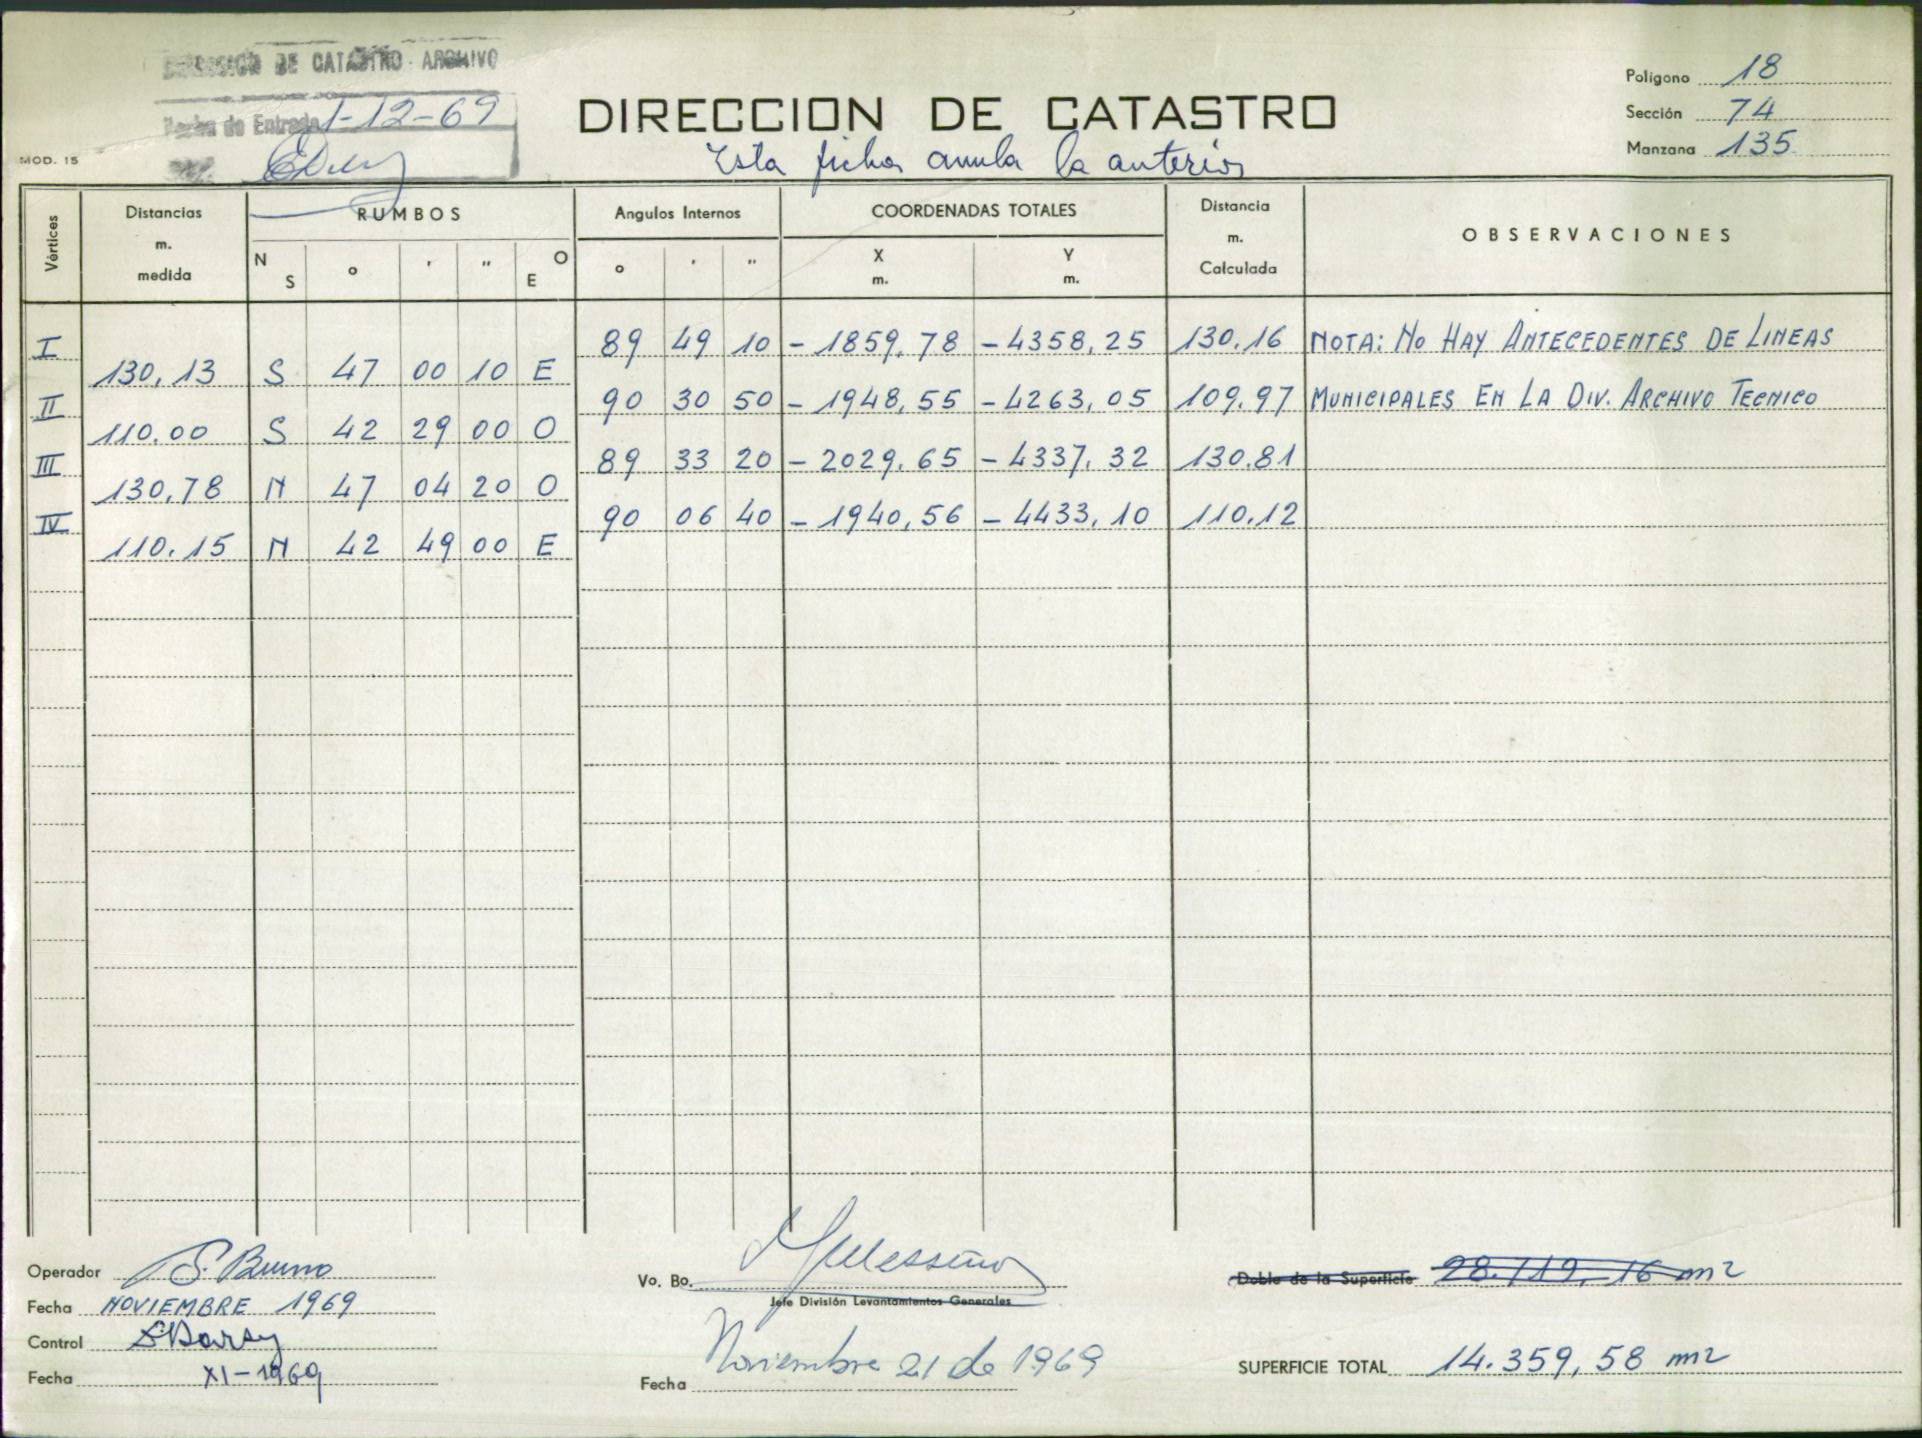 DIRECCION DE CATASTRO ARCHIVO
Fecha de Entrada 1-12-69
MOD. 15
DIRECCION DE CATASTRO
Esta ficha anula la anterior
Poligono 18
Sección 74
Manzana 135
Vértices
Distancias m. medida
RUMBOS
N S ° ' " O E
Angulos Internos
° ' "
COORDENADAS TOTALES
X m. Y m.
Distancia m. Calculada
OBSERVACIONES
I 89 49 10 - 1859,78 - 4358,25 130.16 NOTA: NO HAY ANTECEDENTES DE LINEAS
130,13 S 47 00 10 E
II 90 30 50 - 1948,55 - 4263,05 109.97 MUNICIPALES EN LA DIV. ARCHIVO TECNICO
110.00 S 42 29 00 O
III 89 33 20 - 2029,65 - 4337,32 130.81
130,78 N 47 04 20 O
IV 90 06 40 - 1940,56 - 4433,10 110.12
110.15 N 42 49 00 E
Operador S. Bueno
Fecha NOVIEMBRE 1969
Control
Fecha XI-1969
Vo. Bo.
Jefe División Levantamientos Generales
Fecha Noviembre 21 de 1969
Doble de la Superficie 28.719,16 m2
SUPERFICIE TOTAL 14.359,58 m2